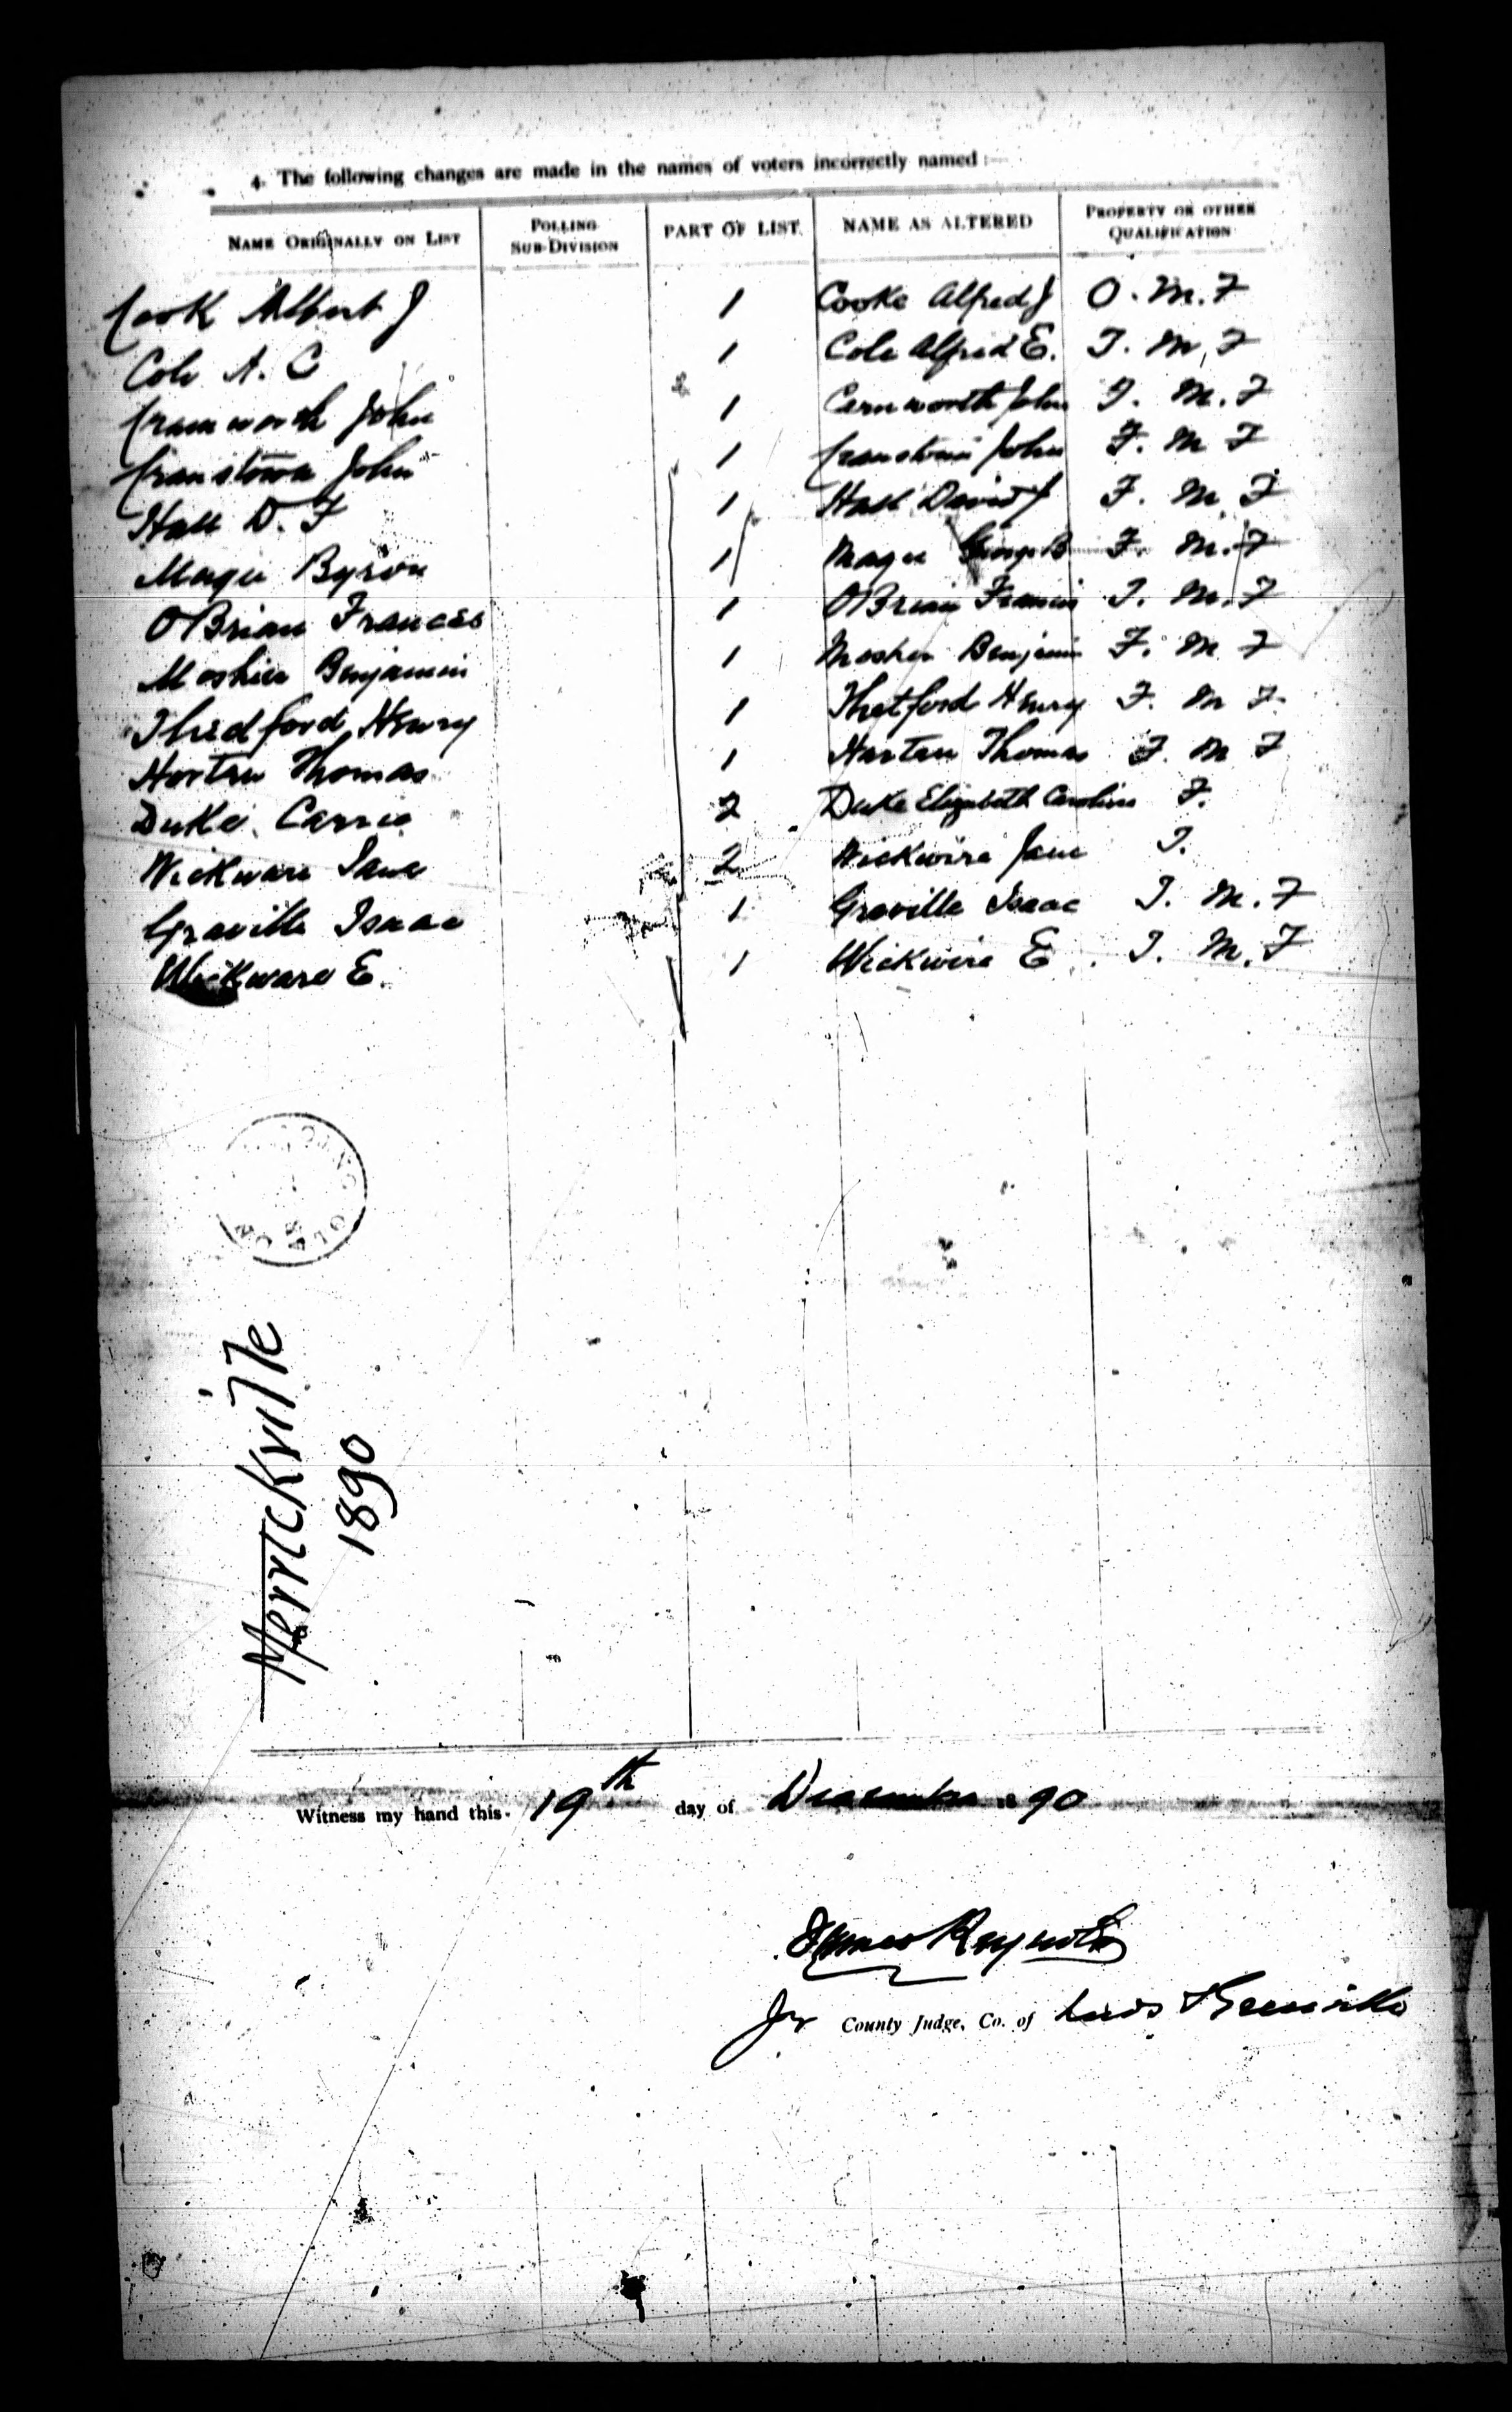 4. The following changes are made in the names of voters incorrectly named :—
NAME ORIGINALLY ON LIST POLLING SUB-DIVISION PART OF LIST. NAME AS ALTERED PROPERTY OR OTHER QUALIFICATION
Cook Albert J 1 Cooke Alfred J O. M. F
Cole A. C 1 Cole Alfred E. T. M. F
John 1 Carnworth John T. M. F
Cranstown John 1 John F. M F
Hall D. F 1 Hall David F F. M F
Magee Byron 1 Magee George B F. M. F
O'Brian Frances 1 O'Brian Francis T. M. F
Moshier Benjamin 1 Mosher Benjamin F. M F
Thedford Henry 1 Thetford Henry F. M F.
Thomas 1 Thomas F. M F
Duke Carrie 2 Duke Elizabeth Caroline F.
Wickware Jane 2 Wickwire Jane T.
Graville Isaac 1 Isaac T. M. F
Wickware E. 1 Wickwire E. T. M. F
Merrickville
1890
Witness my hand this 19th day of December 1890
James Reynolds
Jr County Judge, Co. of Leeds & Grenville